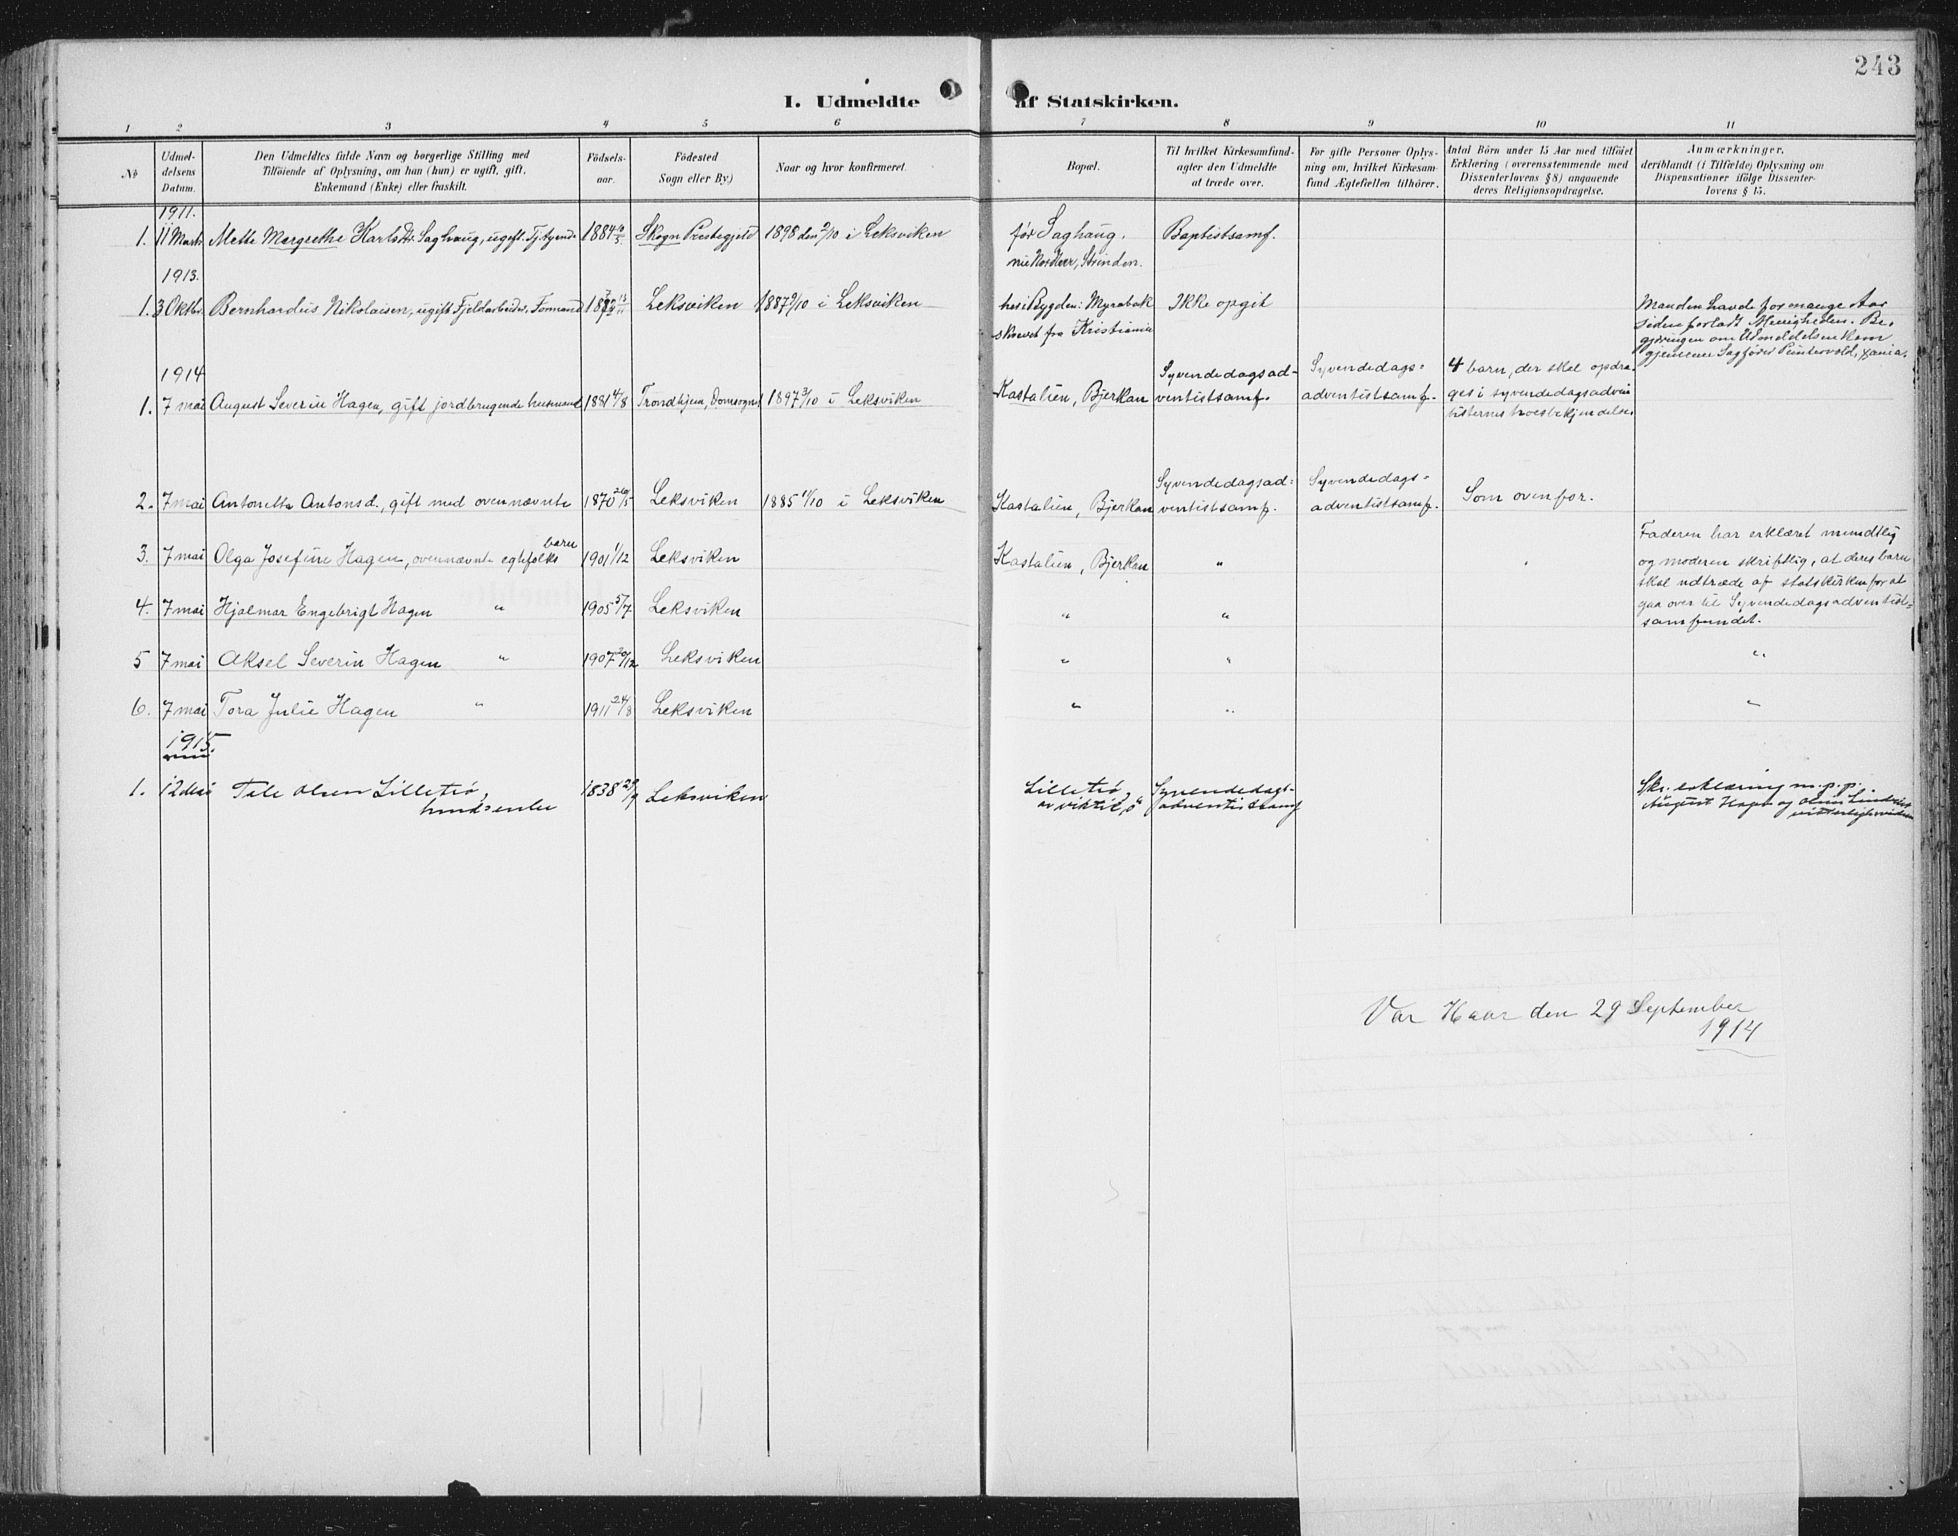 243
I. Udmeldte af Statskirken.
1 2 3 4 5 6 7 8 9 10 11
No
Udmeldelsens Datum.
Den Udmeldtes fulde Navn og borgerlige Stilling med
Tilföiende af Oplysning, om han (hun) er ugift, gift,
Enkemand (Enke) eller fraskilt.
Födselsaar.
Födested
Sogn eller By.)
Naar og hvor konfirmeret.
Bopæl.
Til hvilket Kirkesamfund
agter den Udmeldte
at træde over.
For gifte Personer Oplys-
ning om, hvilket Kirkesam-
fund Ægtefællen tilhörer.
Antal Börn under 15 Aar med tilföiet
Erklæring (overensstemmende med
Dissenterlovens § 8) angaaende
deres Religionsopdragelse.
Anmærkninger,
deriblandt (i Tilfælde) Oplysning om
Dispensationer ifölge Dissenter-
lovens § 15.
1911.
1. 11 Marts Mette Margrethe Karlsdr. Saghaug, ugift. Tjenestjente 1884 Skogn Præstegjeld 1898 den 2/10 i Leksviken før Saghaug. Baptistsamf.
nu Strinden.
1913.
1. 3 Oktbr. Bernhardus Nikolaisen, ugift Fjeldarbeider, Formand 13/11 Leksviken 1887 9/10 i Leksviken hesi Bygden: Myrabak Ikke opgit Manden havde for mange Aar
skrevet fra Kristiania siden forladt Menigheden. Be-
gjæringen om Udmeldelsen kom
gjennem Sagfører
1914
1. 7 mai August Severin Hagen, gift jordbrugende husmand 1881 4/8 Trondhjem, Domsogn 1897 3/10 i Leksviken Kastalien, Bjerkan Syvendedagsad-
ventistsamf. Syvendedags-
adventistsamf. 4 barn, der skal opdra-
ges i syvendedagsadven
tisternes troesbekjendelse.
2. 7 mai Antonette Antonsd., gift med ovennævnte 1870 26/5 Leksviken 1885 4/10 i Leksviken Kastalien, Bjerkan Syvendedagsad-
ventistsamf. Syvendedags-
adventistsamf. Som ovenfor.
3. 7 mai Olga Josefine Hagen, ovennævnte egtefolks barn 1901 1/12 Leksviken Kastalien, Bjerkan " Faderen har erklæret mundtlig
og moderen skriftlig, at deres barn
skal udtræde af statskirken for at
gaa over til Syvendedagsadventist-
samfundet.
4. 7 mai Hjalmar Engebrigt Hagen " 1905 5/7 Leksviken " "
5 7 mai Aksel Severin Hagen " 1907 20/12 Leksviken " " "
6. 7 mai Tora Julie Hagen " 1911 24/8 Leksviken " " "
1915.
1. 12 Tale Olsen Lilletrø, 1838 29/9 Leksviken Lilletrø, Syvendedags-
adventistsamf Skr. erklæring m.p.p.
August Hagen og
Var Haar den 29 September
1914